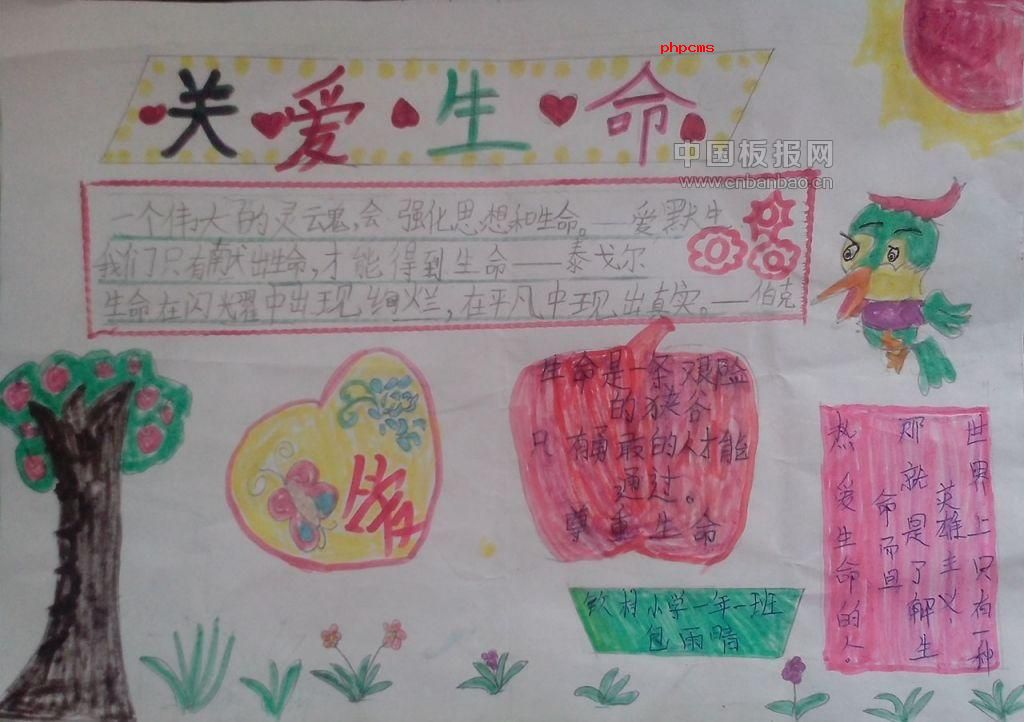 phpcms
关爱生命
中国板报网
www.cnbanbao.cn
一个伟大的灵魂,会强化思想和生命。——爱默生
我们只有献出生命,才能得到生命——泰戈尔
生命在闪耀中出现绚烂,在平凡中现出真实。——伯克
生命是一条艰险
的狭谷
只有勇敢的人才能
通过。
尊重生命
世界上只有一种
英雄主义,
那就是了解生
命而且
热爱生命的人。
小学一年一班
包雨晴